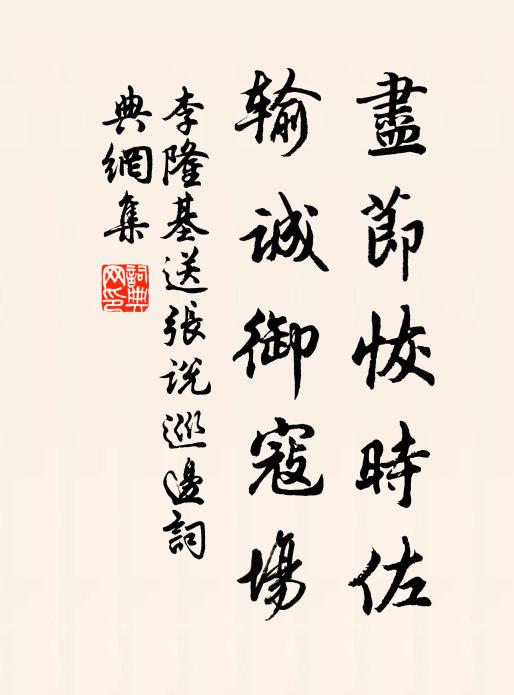 盡節恢時佐
輸誠御寇場
李隆基送張說巡邊詞
典網集
詞典
网印